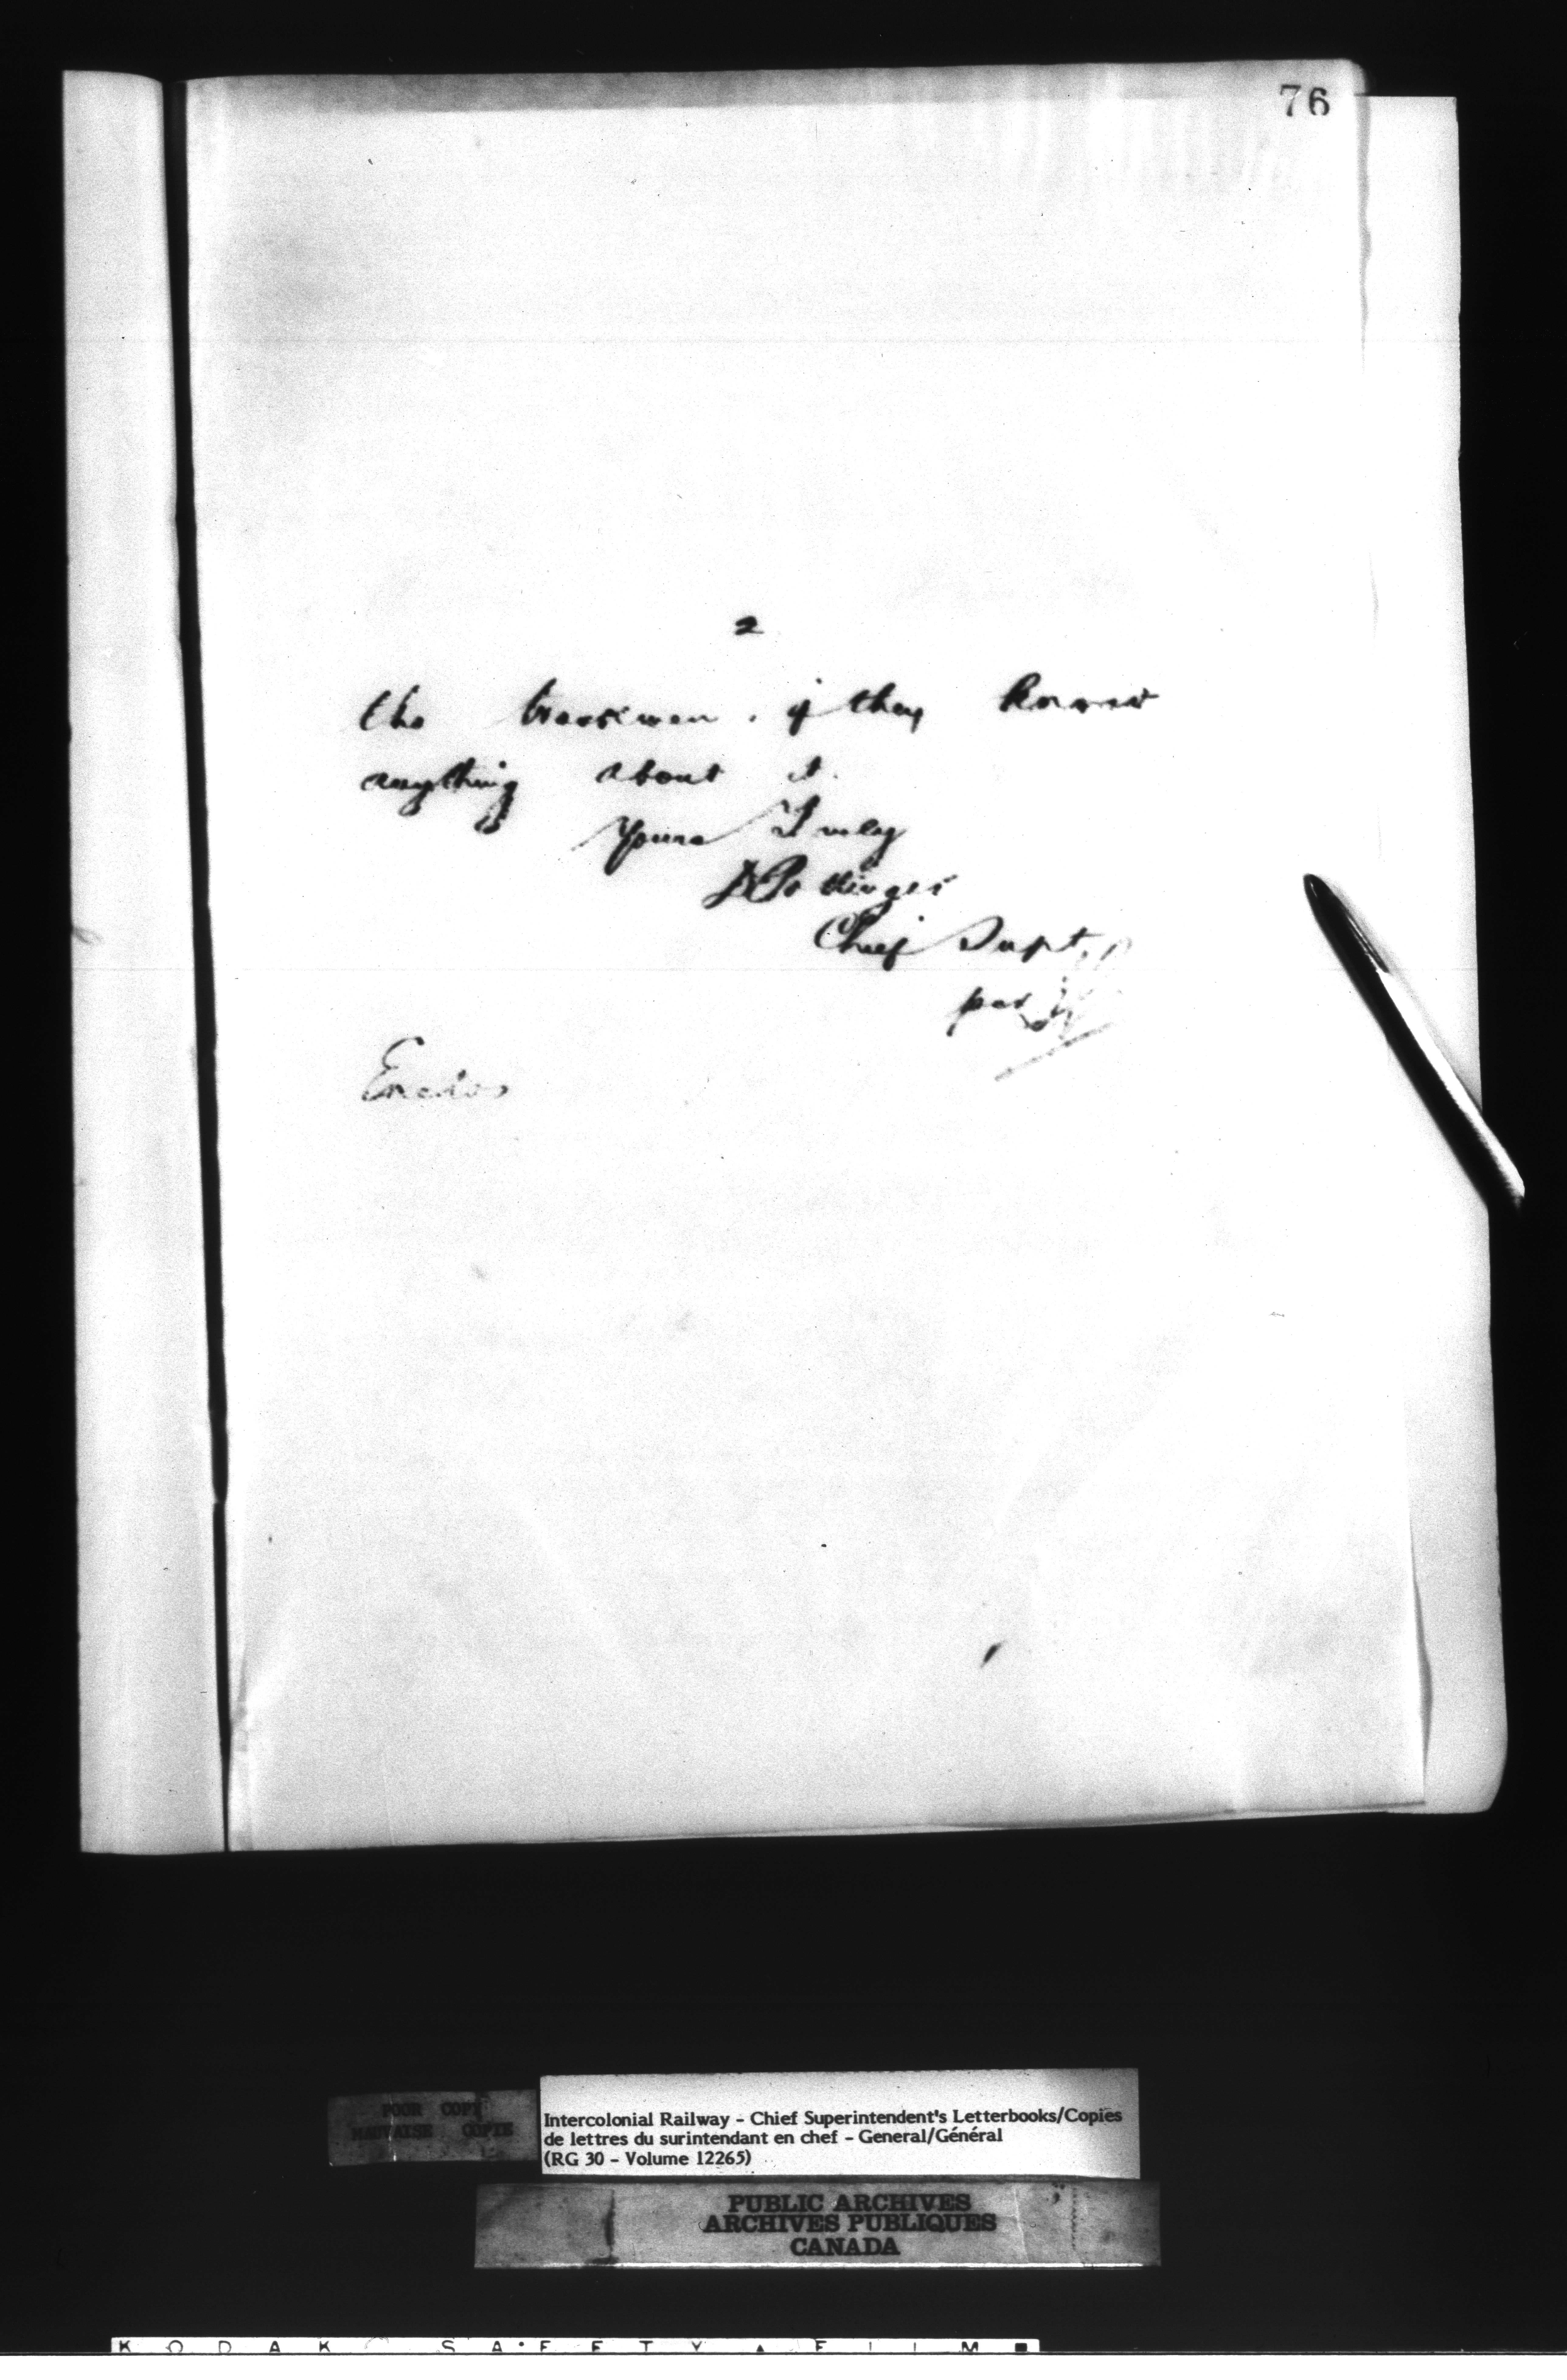 76
2
the trackmen, if they know
anything about it.
Yours Truly
D Pottinger
Chief Supt
per
Enclos
POOR COPY
MAUVAISE COPIE
Intercolonial Railway - Chief Superintendent's Letterbooks/Copies
de lettres du surintendant en chef - General/Général
(RG 30 - Volume 12265)
PUBLIC ARCHIVES
ARCHIVES PUBLIQUES
CANADA
KODAK SAFETY FILM